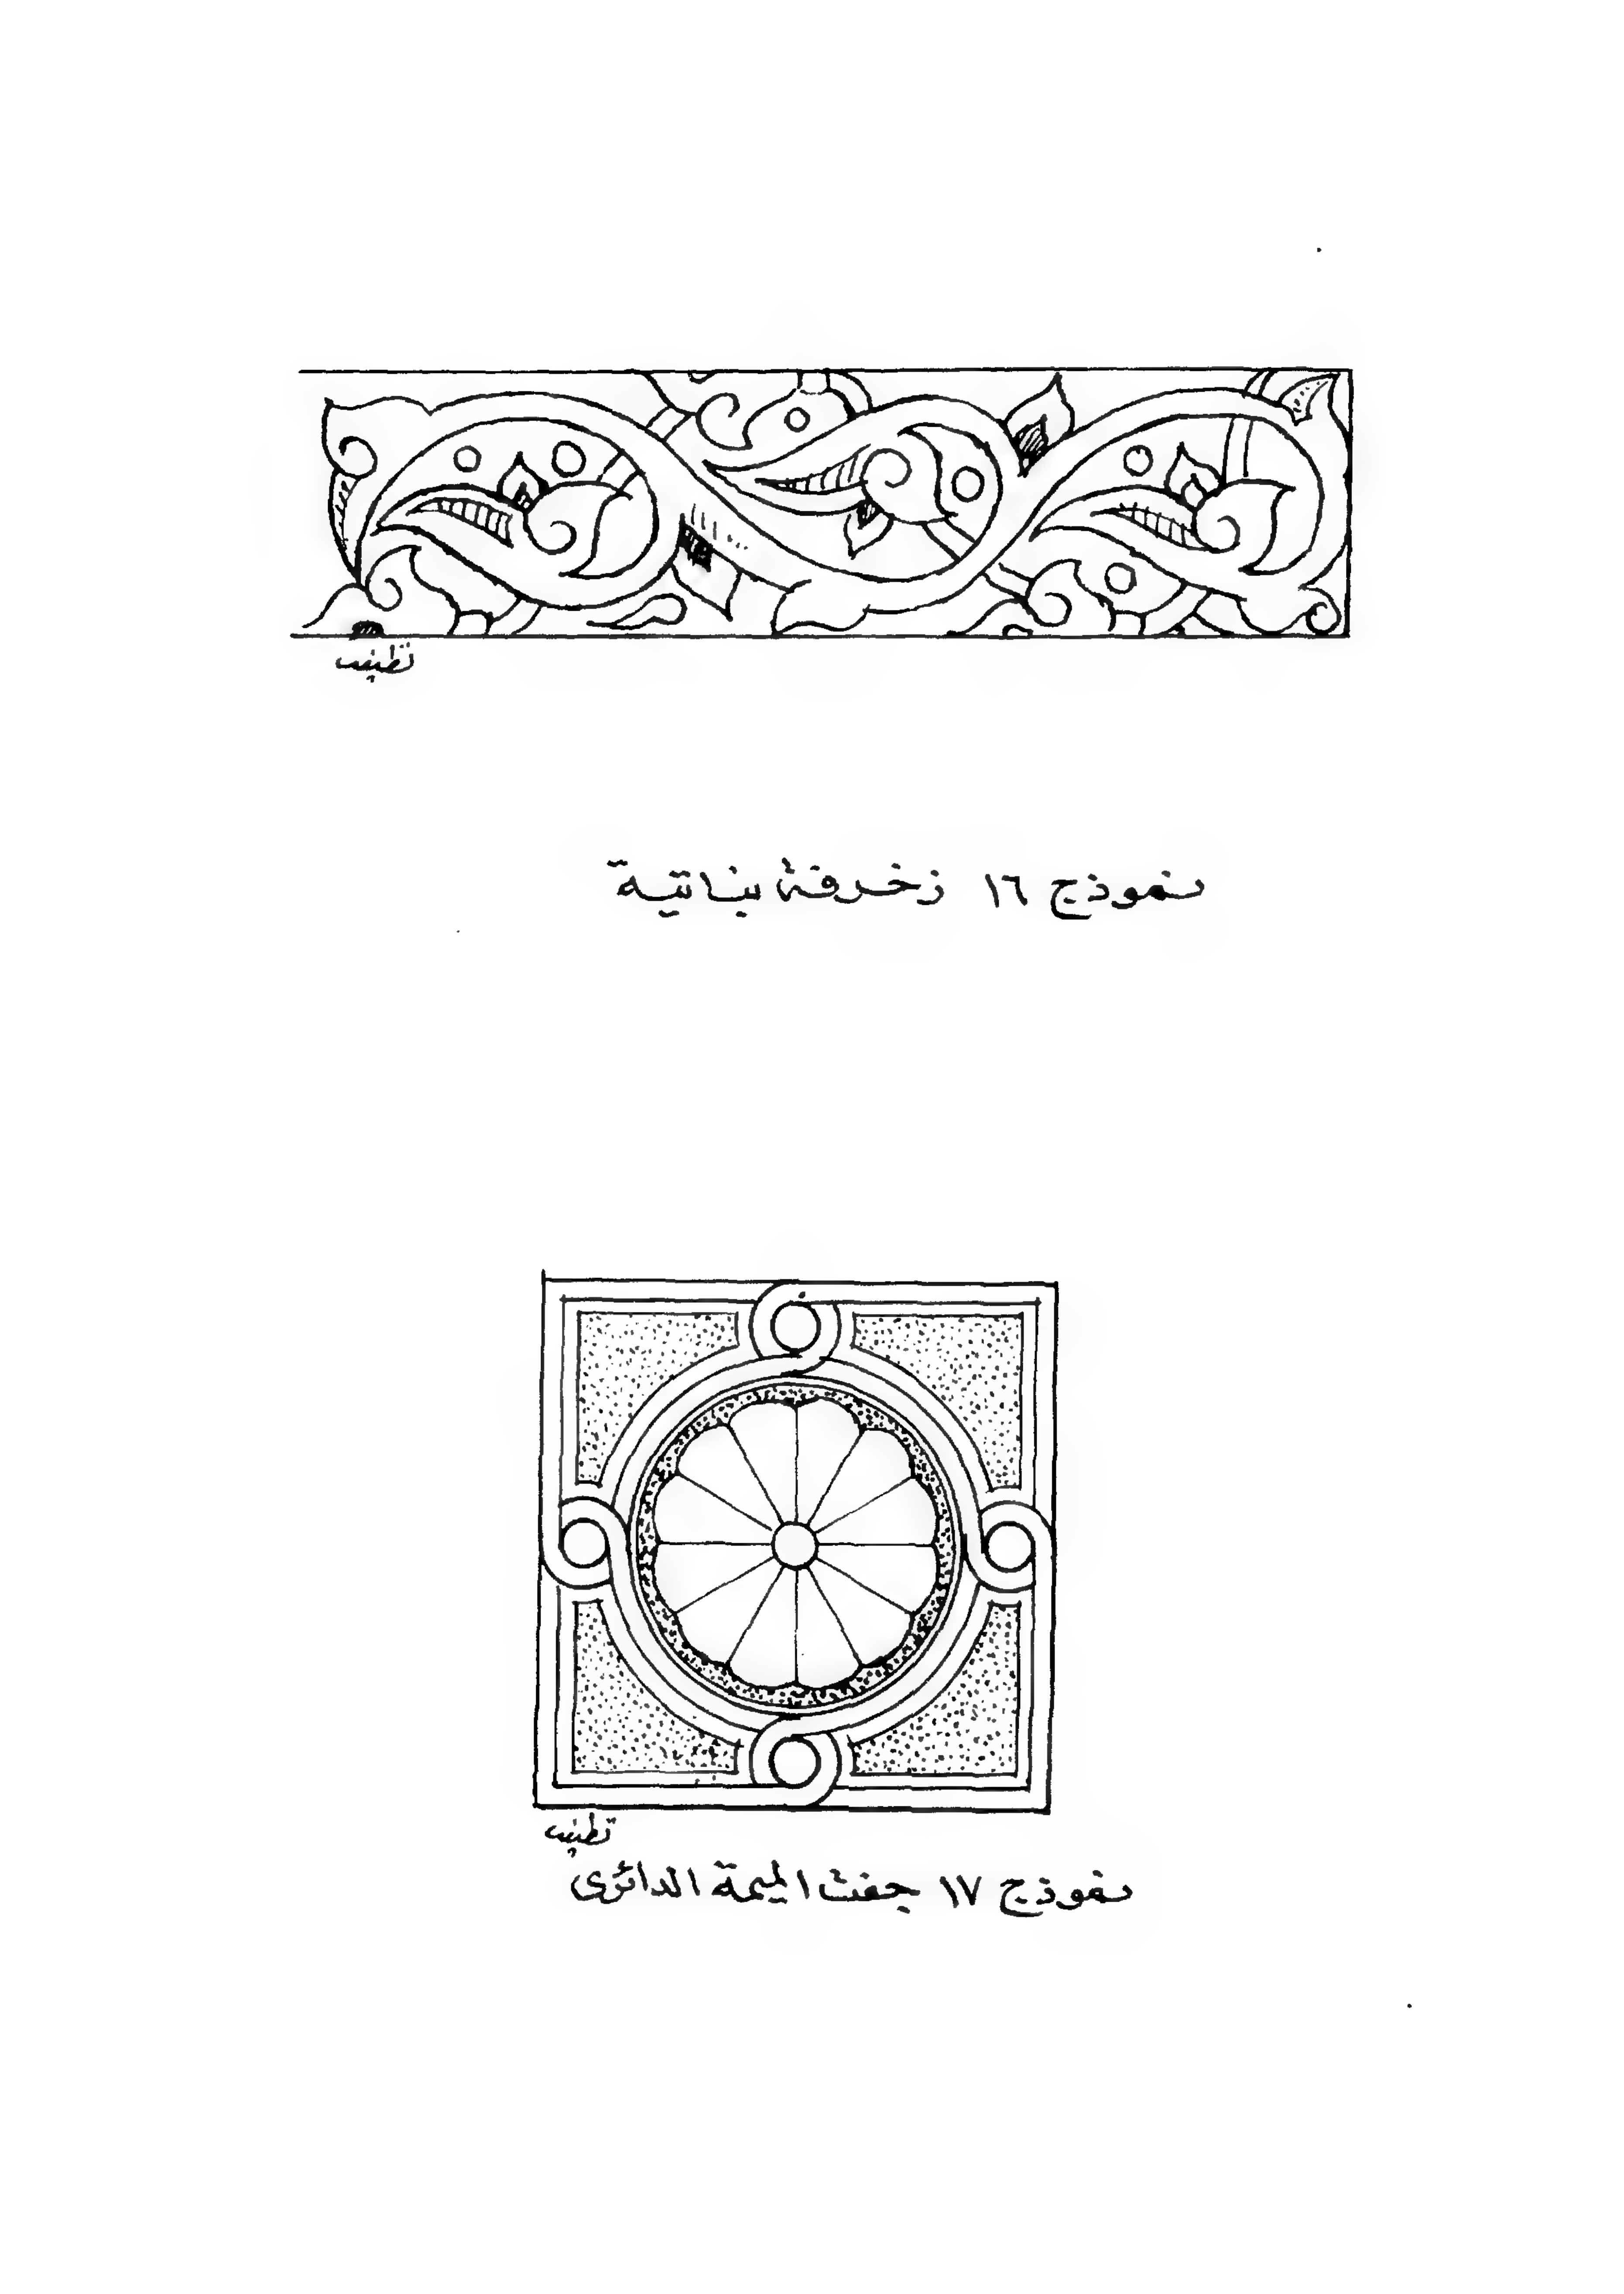 نموذج ١٦ زخرفة نباتية
نموذج ١٧ جفت الميمة الدائرى